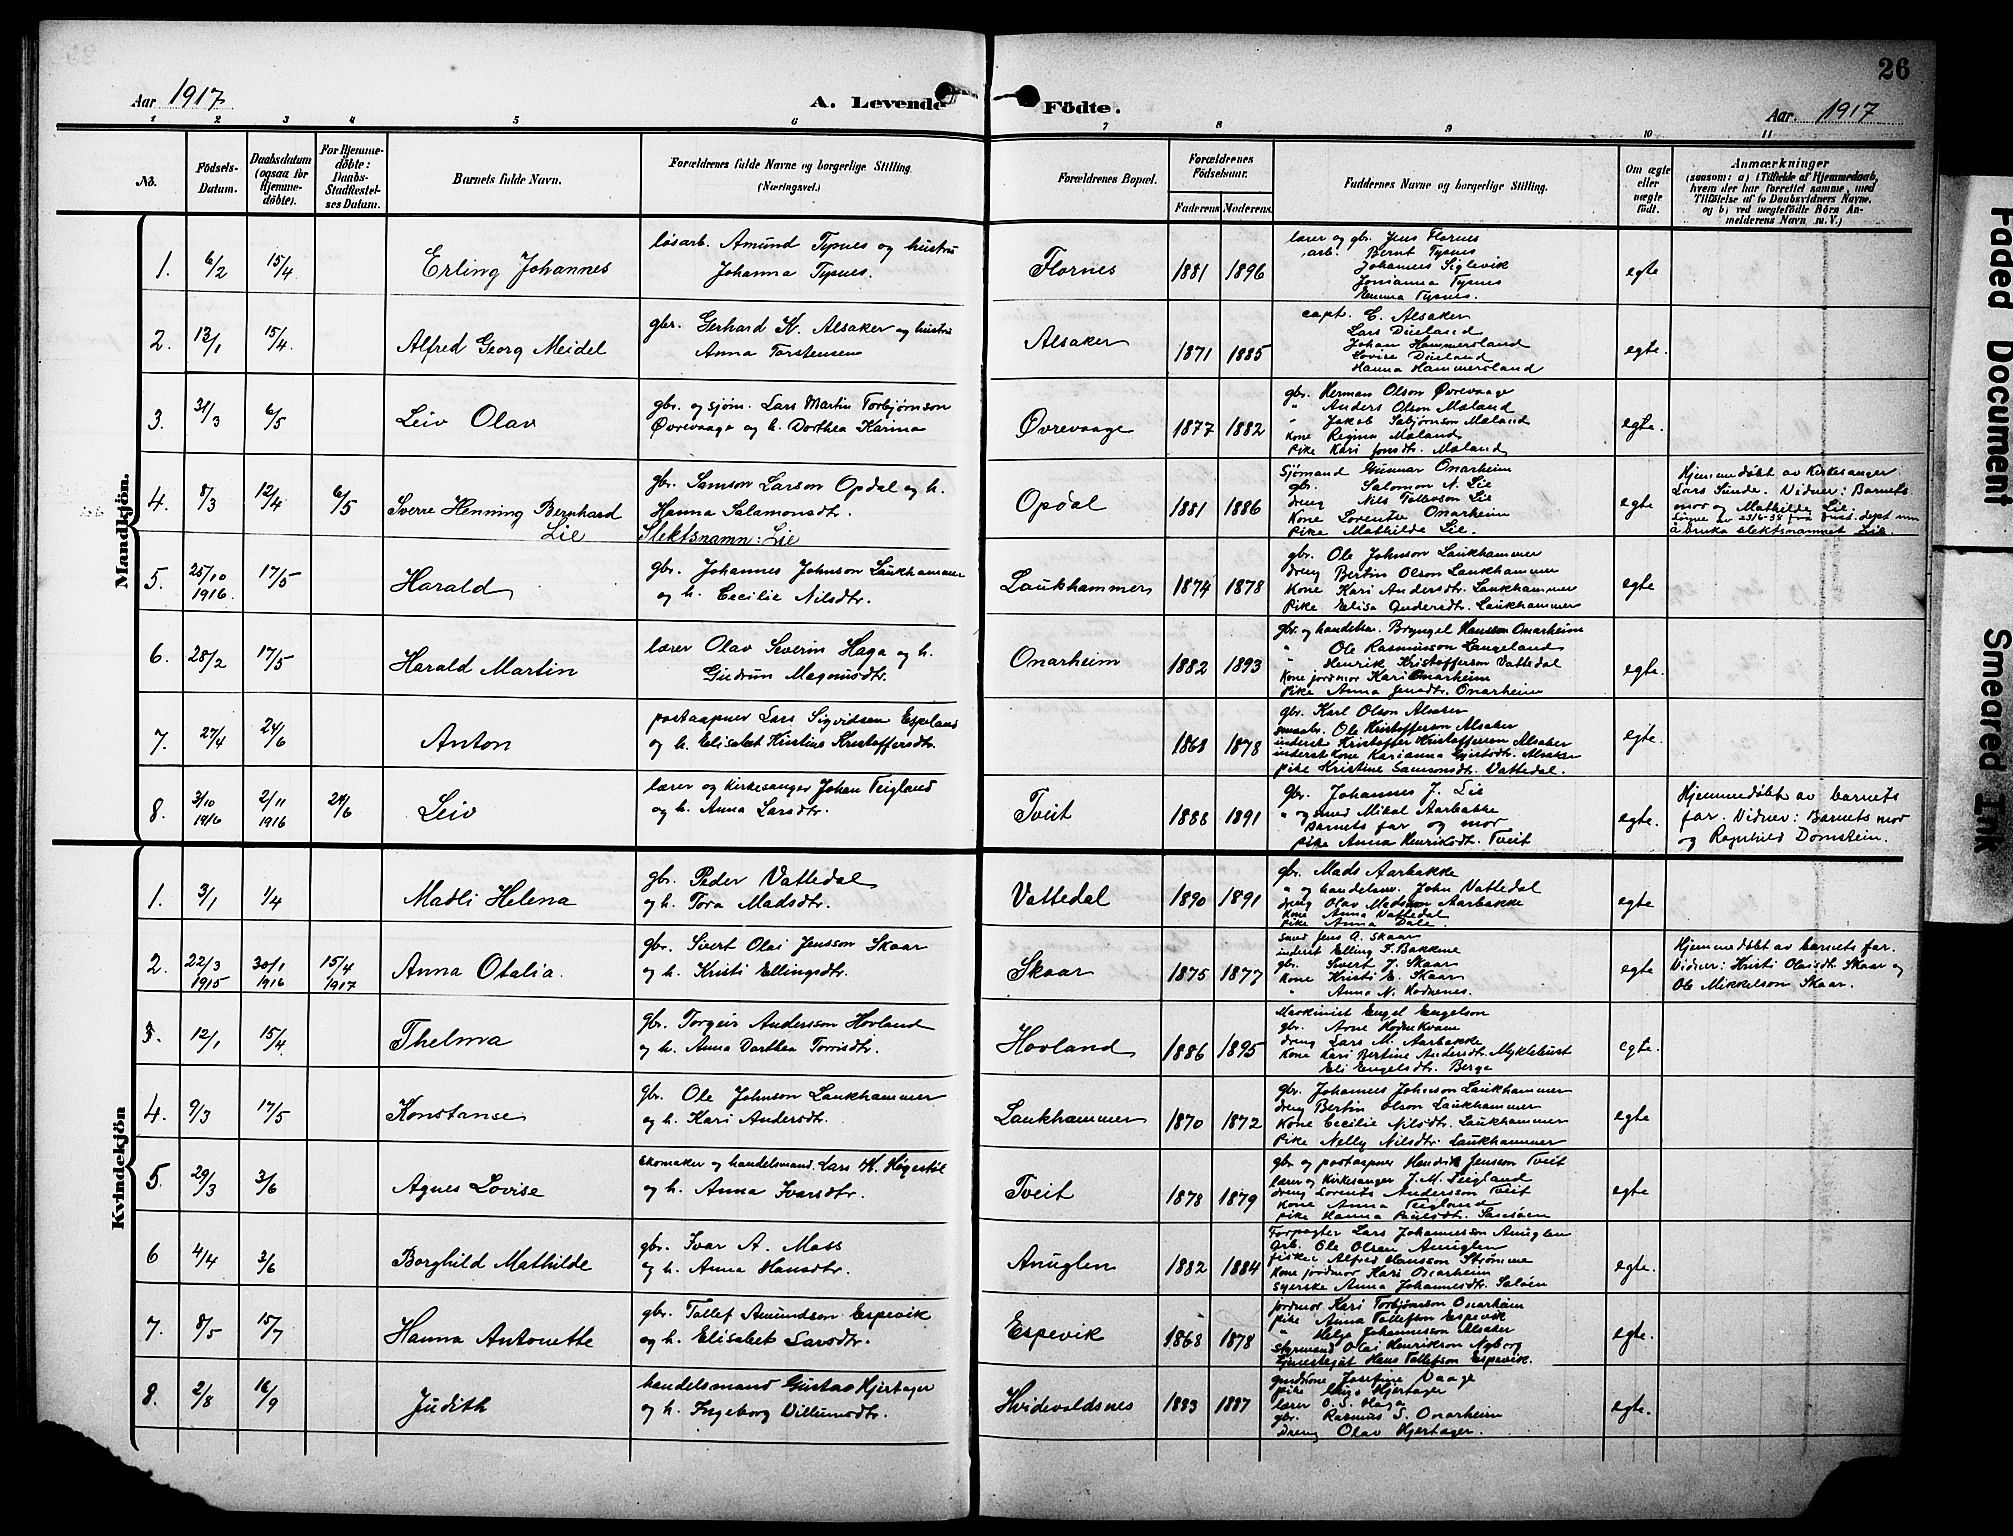 26
Aar 1917
A. Levende Födte.
Aar. 1917
1 2 3 4 5 6 7 8 9 10 11
No.
Födsels-Datum.
Daabsdatum (ogsaa for Hjemme-döbte).
For Hjemme-döbte: Daabs-Stadfæstel-ses Datum.
Barnets fulde Navn.
Forældrenes fulde Navne og borgerlige Stilling. (Næringsvei.)
Forældrenes Bopæl.
Forældrenes Födselsaar.
Faderens Moderens
Faddernes Navne og borgerlige Stilling.
Om ægte eller uægte födt.
Anmærkninger
(saasom: a) i Tilfælde af Hjemmedaab, hvem der har forrettet samme, med Tilföielse af to Daabsvidners Navne, og b) ved uægtefödte Börn Anmelderens Navn m. V.)
Mandkjön.
1. 6/2 15/4 Erling Johannes
løsarb. Amund Tysnes og hustru
Johanna Tysnes.
Flornes 1881 1896
lærer og gbr. Jens Flornes
arb. Bernt Tysnes
Johannes Siglevik
Jonianna Tysnes
Emma Tysnes.
egte
2. 13/1 15/4 Alfred Georg Meidel
gbr. Gerhard K. Alsaker og hustru
Anna Torstensen
Alsaker 1871 1885
capt. E. Alsaker
Lars Dueland
Johan Hammersland
Lovise Dueland
Hanna Hammersland
egte.
3. 31/3 6/5 Leiv Olav
gbr. og sjøm. Lars Martin Torbjørnson
Øvrevaage og h. Dorthea Karina
Øvrevaage 1877 1882
gbr. Herman Olson Øvrevaage
" Anders Olson Mæland
" Jakob Sebjørnson Mæland
Kone Regina Mæland
Pike Kari Jonsdtr. Mæland
egte.
4. 8/3 12/4 6/5 Sverre Henning Bernhard
Lie
gbr. Samson Larson Opdal og h.
Hanna Salamonsdtr.
Slektsnamn: Lie
Opdal 1881 1886
Sjømand Gunnar Onarheim
gbr. Salomon N. Lie
dreng Nils Tollevson Lie
Kone Lorentse Onarheim
Pike Mathilde Lie.
egte
Hjemmedøbt av Kirkesanger
Lars Sunde. Vidner: Barnets
mor og Mathilde Lie.
å bruka slektsnamnet Lie.
5. 25/10 1916 17/5 Harald
gbr. Johannes Johnson Laukhammer
og h. Cecilie Nilsdtr.
Laukhammer 1874 1878
gbr. Ole Johnson Laukhammer
dreng Bertin Olson Laukhammer
Kone Kari Andersdtr. Laukhammer
Pike Elisa Andersdtr. Laukhammer
egte
6. 28/2 17/5 Harald Martin
lærer Olav Severin Haga og h.
Gudrun Magnusdtr.
Onarheim 1882 1893
gbr. og handelsm. Bryngel Hansson Onarheim
" Ole Rasmusson Langeland
" Henrik Kristofferson Vattedal
Kone jordmor Kari Onarheim
Pike Anna Jensdtr. Onarheim
egte.
7. 27/4 24/6 Anton
postaapner Lars Sigvidsen Espeland
og h. Elisabet Kristine Kristoffersdtr.
1868 1878
gbr. Karl Olson Alsaker
smaabr. Ole Kristofferson Alsaker
inderst Kristoffer Kristofferson Alsaker
inderst Kone Karianna Gjertsdtr. Alsaker
pike Kristine Samsonsdtr. Vattedal.
egte.
8. 3/10 1916 2/11 1916 24/6 Leiv
lærer og Kirkesanger Johan Teigland
og h. Anna Larsdtr.
Tveit 1888 1891
gbr. Johannes J. Lie
" og smed Mikal Aarbakke
Barnets far og mor
pike Anna Henriksdtr. Tveit
egte.
Hjemmedøbt av barnets
far. Vidner: Barnets mor
og Ragnhild Domstein.
Kvindekjön
1. 3/1 1/4 Madli Helena
gbr. Peder Vattedal
og h. Tora Madsdtr.
Vattedal 1890 1891
gbr. Mads Aarbakke
" og handelsm. John Vattedal
dreng Olav Madsson Aarbakke
Kone Anna Vattedal
Pike Anna Dale.
egte
2. 22/3 1915 30/1 1916 15/4 1917 Anna Otalia.
gbr. Sivert Olai Jensson Skaar
og h. Kristi Ellingsdtr.
Skaar 1875 1877
Smed Jens A. Skaar
inderst Elling F. Bakkene
gbr. Sivert J. Skaar
Kone Kristi E. Skaar
" Anna N. Hodnenes.
egte
Hjemmedøbt av barnets far.
Vidner: Kristi Olaisdtr. Skaar og
Ole Mikkelson Skaar.
3. 12/1 15/4 Thelma
gbr. Torgeir Andersson Hovland
og h. Anna Dorthea Torrisdtr.
Hovland 1886 1895
Maskinist Engel Engelson
gbr. Arne Hodnekvam
dreng Lars M. Aarbakke
Kone Kari Bertine Andersdtr. Myklebust
Eli Engelsdtr. Berge
egte.
4. 9/3 17/5 Konstanse
gbr. Ole Johnson Laukhammer
og h. Kari Andersdtr.
Laukhammer 1870 1872
gbr. Johannes Johnson Laukhammer
dreng Bertin Olson Laukhammer
Kone Cecilie Nilsdtr. Laukhammer
Pike Nelly Nilsdtr. Laukhammer
egte
5. 29/3 3/6 Agnes Lovise
Skomaker og handelsmand. Lars K. Høgestøl
og h. Anna Ivarsdtr.
Tveit 1878 1879
gbr. og postaapner Hendrik Jensson Tveit
lærer og Kirkesanger J. M. Teigland
dreng Lorents Andersson Tveit
Kone Anna Teigland
pike Hanna Paulsdtr.
egte
6 4/4 3/6 Borghild Mathilde
gbr. Ivar A. Moss
og h. Anna Hansdtr.
Anuglen 1882 1884
Forpagter Lars Johannesson Anuglen
Arb. Ole Olsen Anuglen
fisker Alfred Hansson Strømme
Kone jordmor Kari Onarheim
syerske Anna Johannesdtr. Saløen
egte.
7. 8/5 15/7 Hanna Antonette
gbr. Tollef Amundson Espevik
og h. Elisabet Larsdtr.
Espevik 1868 1878
jordmor Kari Torbjørnson Onarheim
pike Anna Tollefson Espevik
" Helga Johannesson Alsaker
Styrmand Olai Henrikson Nyborg
Tjenestegut Hans Tollefson Espevik.
egte.
8. 2/8 16/9 Judith
handelsmand Gustav Hjertager
og h. Ingeborg Villumsdtr.
Hvidevoldsnes 1883 1887
gmdkone Josefine Vaage
pike Hjertager
lærer O. S. Haga
gbr. Rasmus S. Onarheim
Dreng Olav Hjertager.
egte.
Faded Document
Smeared Ink